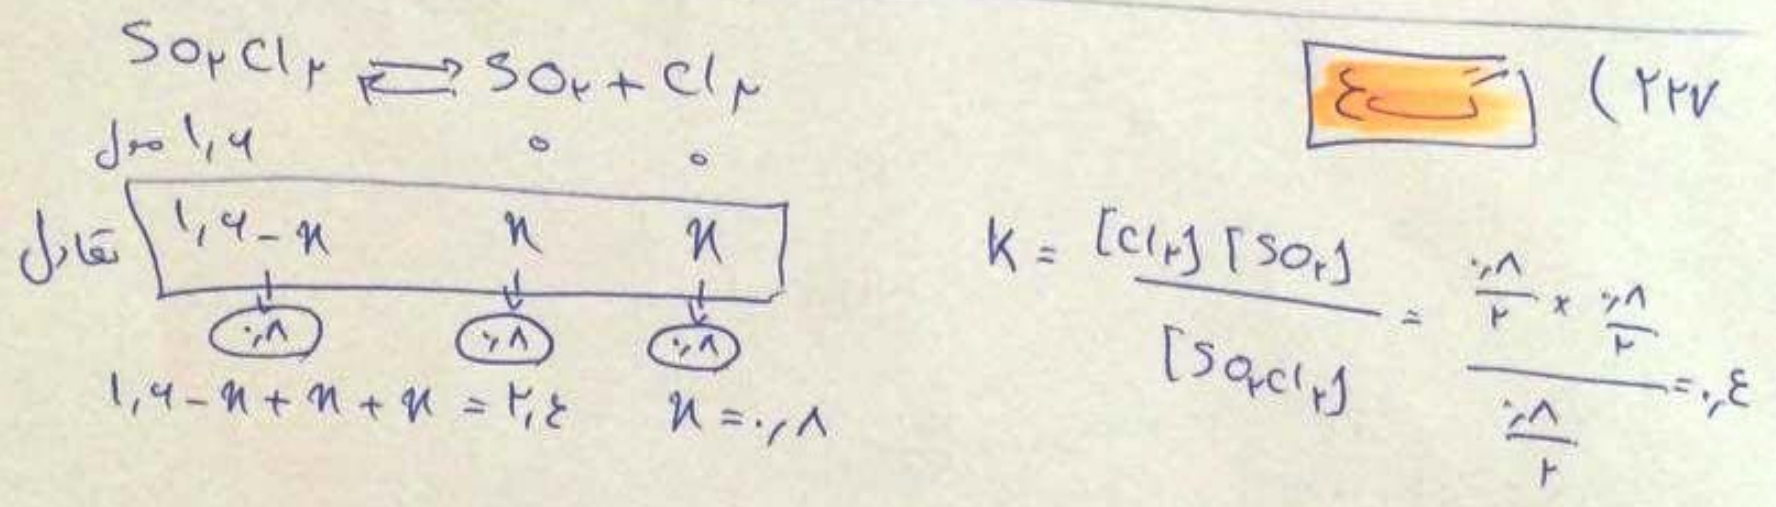 ۲۲۷) گزینه ۴
SO۲Cl۲ ⇌ SO۲ + Cl۲
مول ۱,۶ ۰ ۰
تعادل ۱,۶-x x x
۰,۸ ۰,۸ ۰,۸
۱,۶-x+x+x=۲,۴ x=۰,۸
K = [Cl۲][SO۲] / [SO۲Cl۲] = ۰,۸/۲ × ۰,۸/۲ / ۰,۸/۲ = ۰,۴